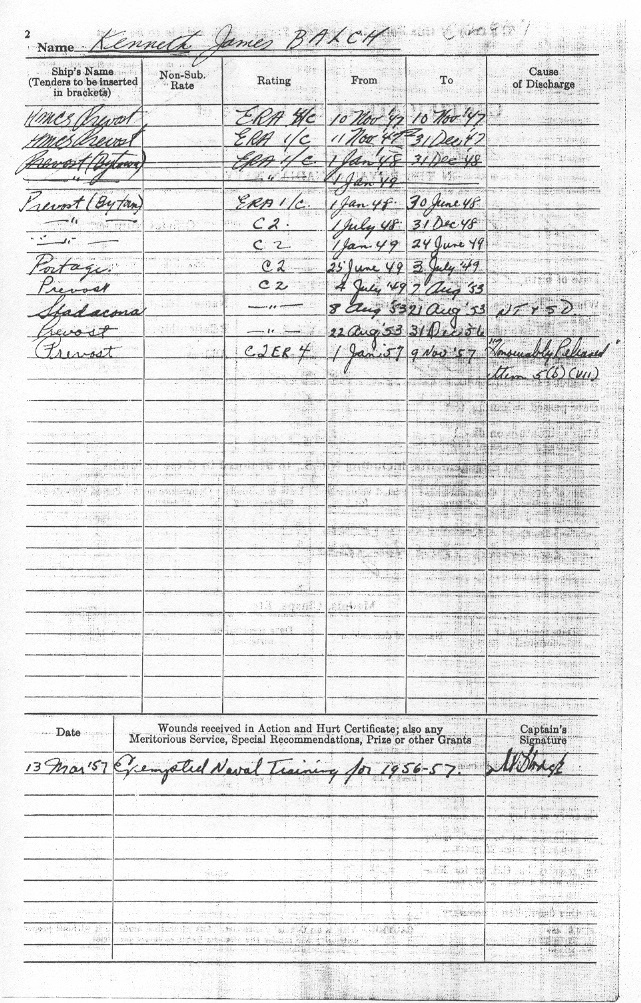 2
Name Kenneth James BALCH
Ship's Name (Tenders to be inserted in brackets) Non-Sub. Rate Rating From To Cause of Discharge
HMCS Prevost ERA 4/C 10 Nov '47 10 Nov '47
HMCS Prevost ERA 1/C 11 Nov '47 31 Dec '47
Prevost (Bytown) ERA 1/C 1 Jan '48 31 Dec '48
" " 1 Jan 49
Prevost (Bytown) ERA 1/C. 1 Jan 48 30 June 48
—"— C2. 1 July 48 31 Dec 48
—"— C2 1 Jan 49 24 June 49
Portage. C2 25 June 49 3 July '49
Prevost C2 4 July '49 7 Aug '53
Stadacona —"— 8 Aug '53 21 Aug '53 N T Y S D.
Prevost —"— 22 Aug '53 31 Dec 56
Prevost C2ER4 1 Jan '57 9 Nov '57 "Honourably Released"
Item 5(b)(VII)
Date Wounds received in Action and Hurt Certificate; also any Meritorious Service, Special Recommendations, Prize or other Grants Captain's Signature
13 Mar '57 Exempted Naval Training for 1956-57.